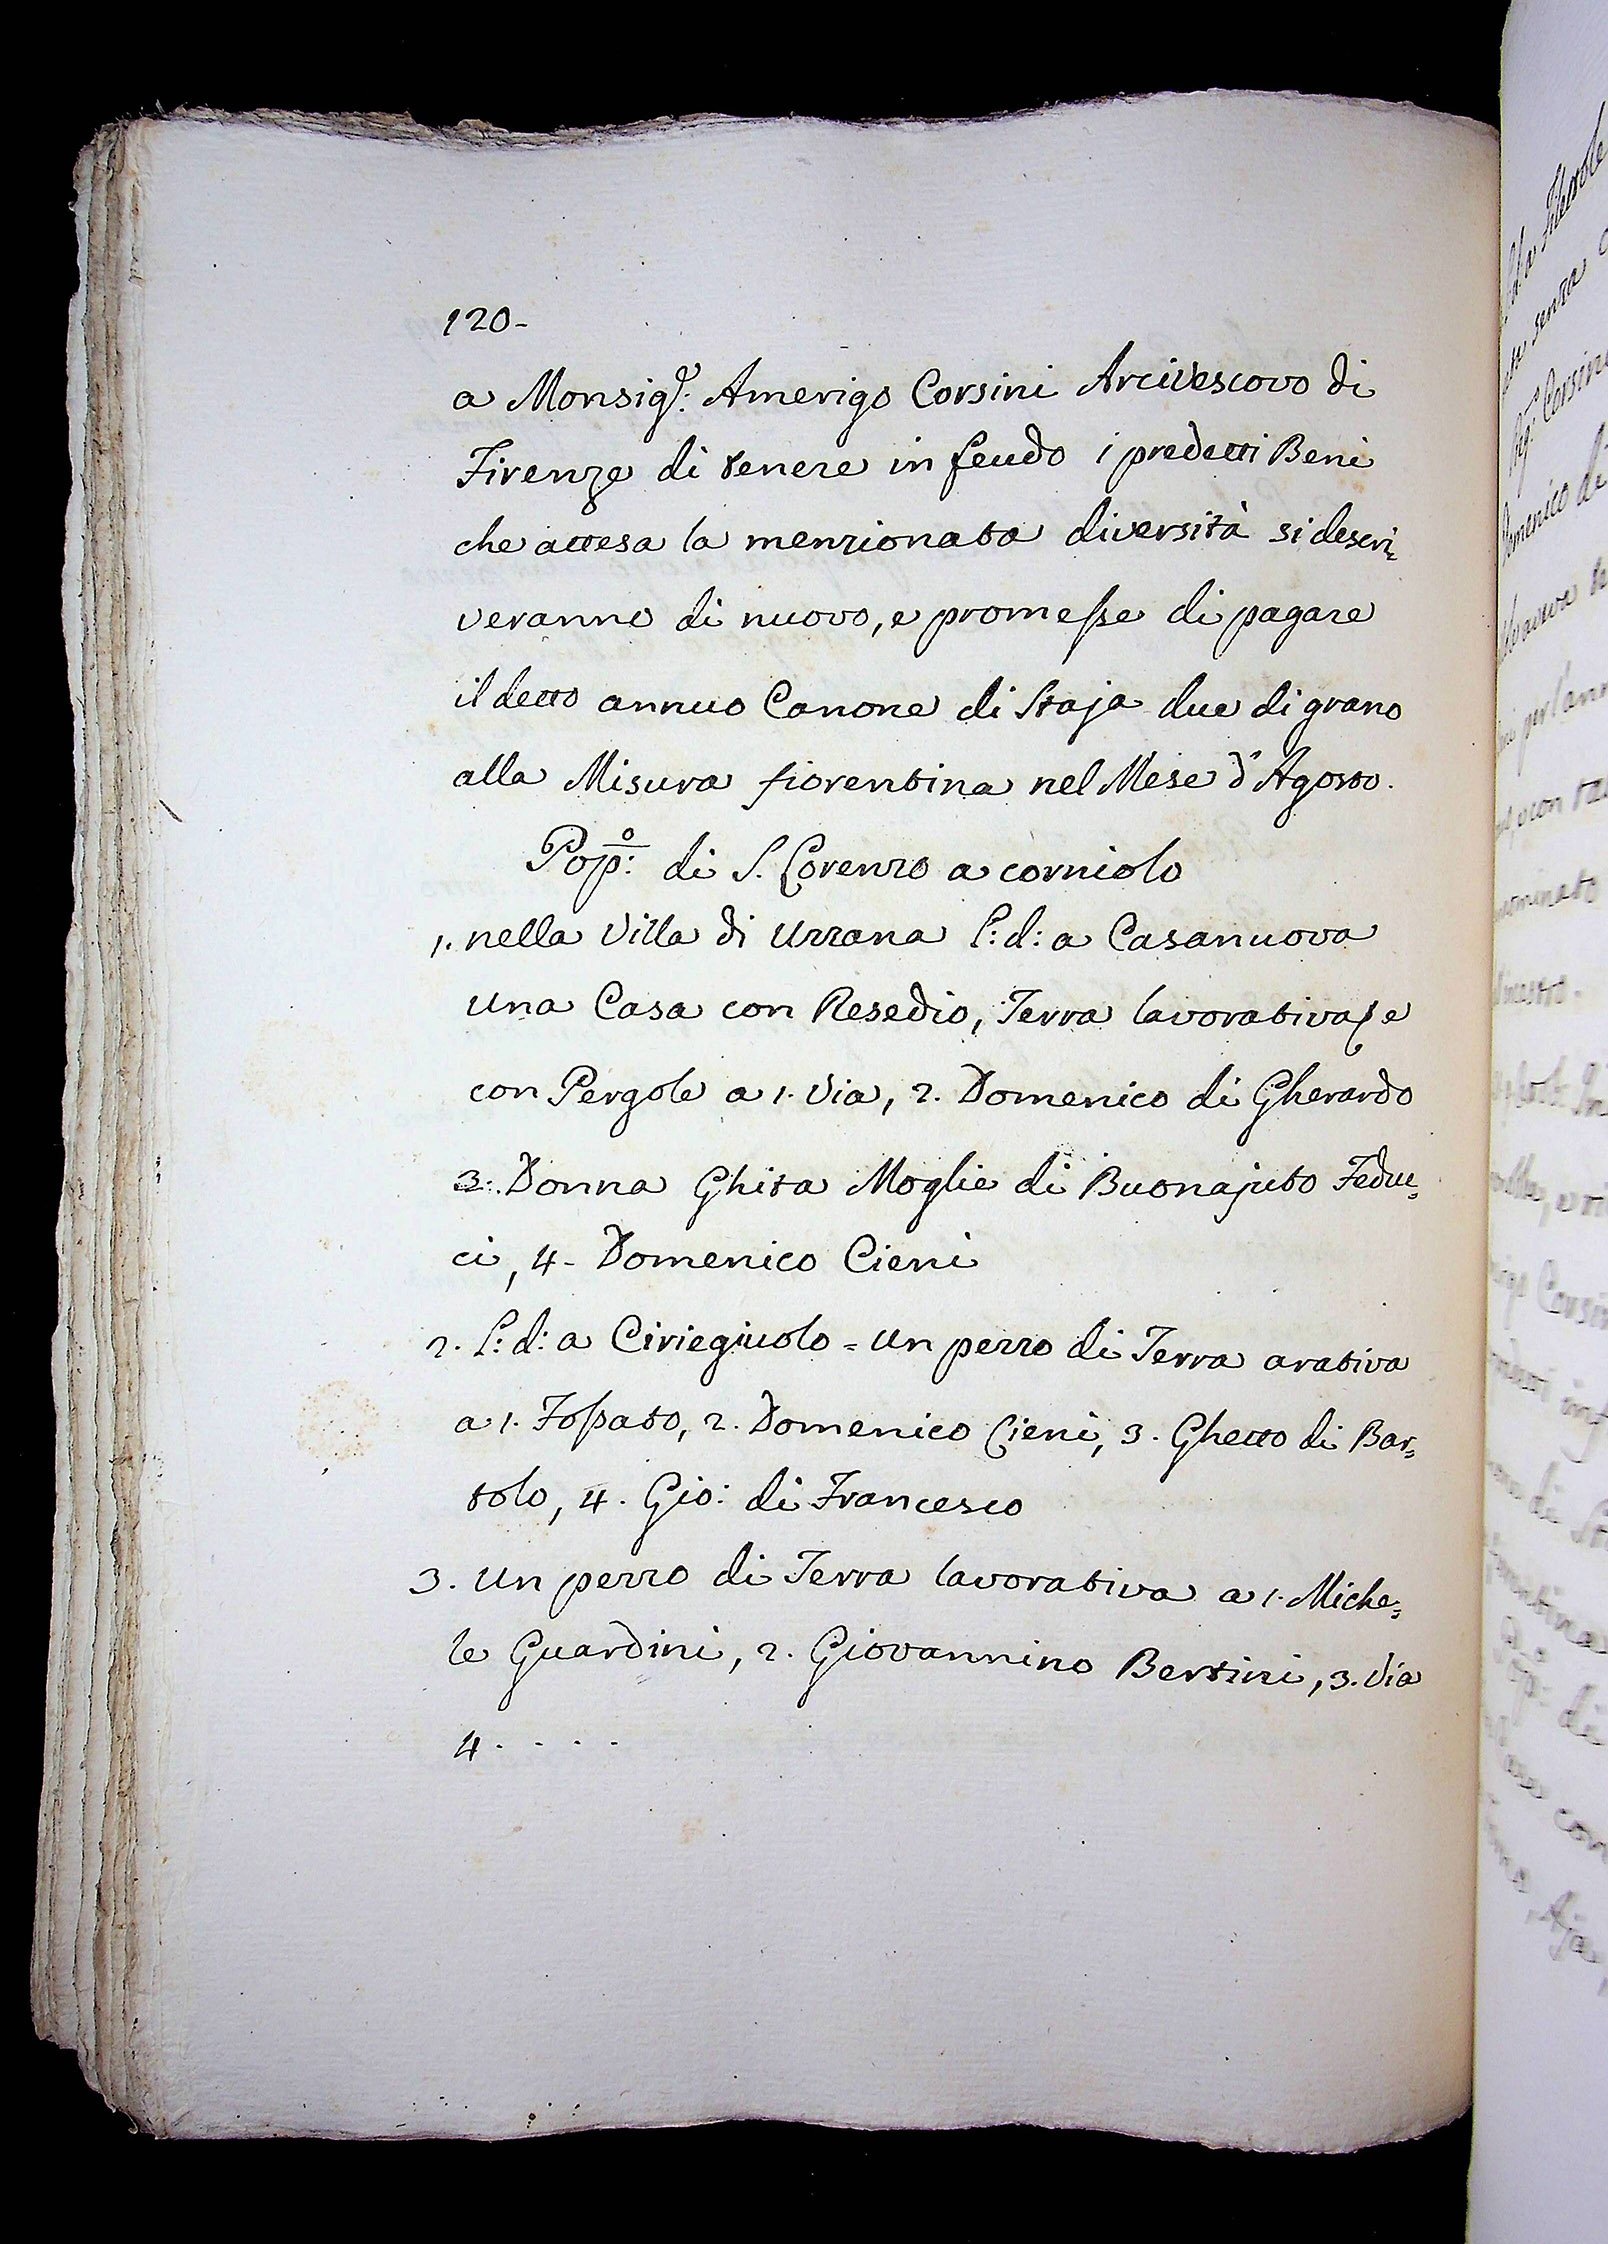 120-
a Monsig.r: Amerigo Corsini Arcivescovo di
Firenze di tenere in feudo i predetti Beni
che attesa la menzionata diversità si descri=
veranno di nuovo, e promesse di pagare
il detto annuo Canone di Staja due di grano
alla Misura fiorentina nel Mese d'Agosto.
Pop:o di S. Lorenzo a corniolo
1. nella Villa di Uzzana l: d: a Casanuova
una Casa con Resedio, Terra lavorativa, e
con Pergole a 1. Via, 2. Domenico di Gherardo
3. Donna Ghita Moglie di Buonajuto Fedu=
ci, 4- Domenico Cieni
2. l: d: a Ciriegiuolo = Un pezzo di Terra arativa
a 1. Fossato, 2. Domenico Cieni, 3. Ghetto di Bar=
tolo, 4. Gio: di Francesco
3. Un pezzo di Terra lavorativa a 1. Miche=
le Guardini, 2. Giovannino Bertini, 3. Via
4 . . . .